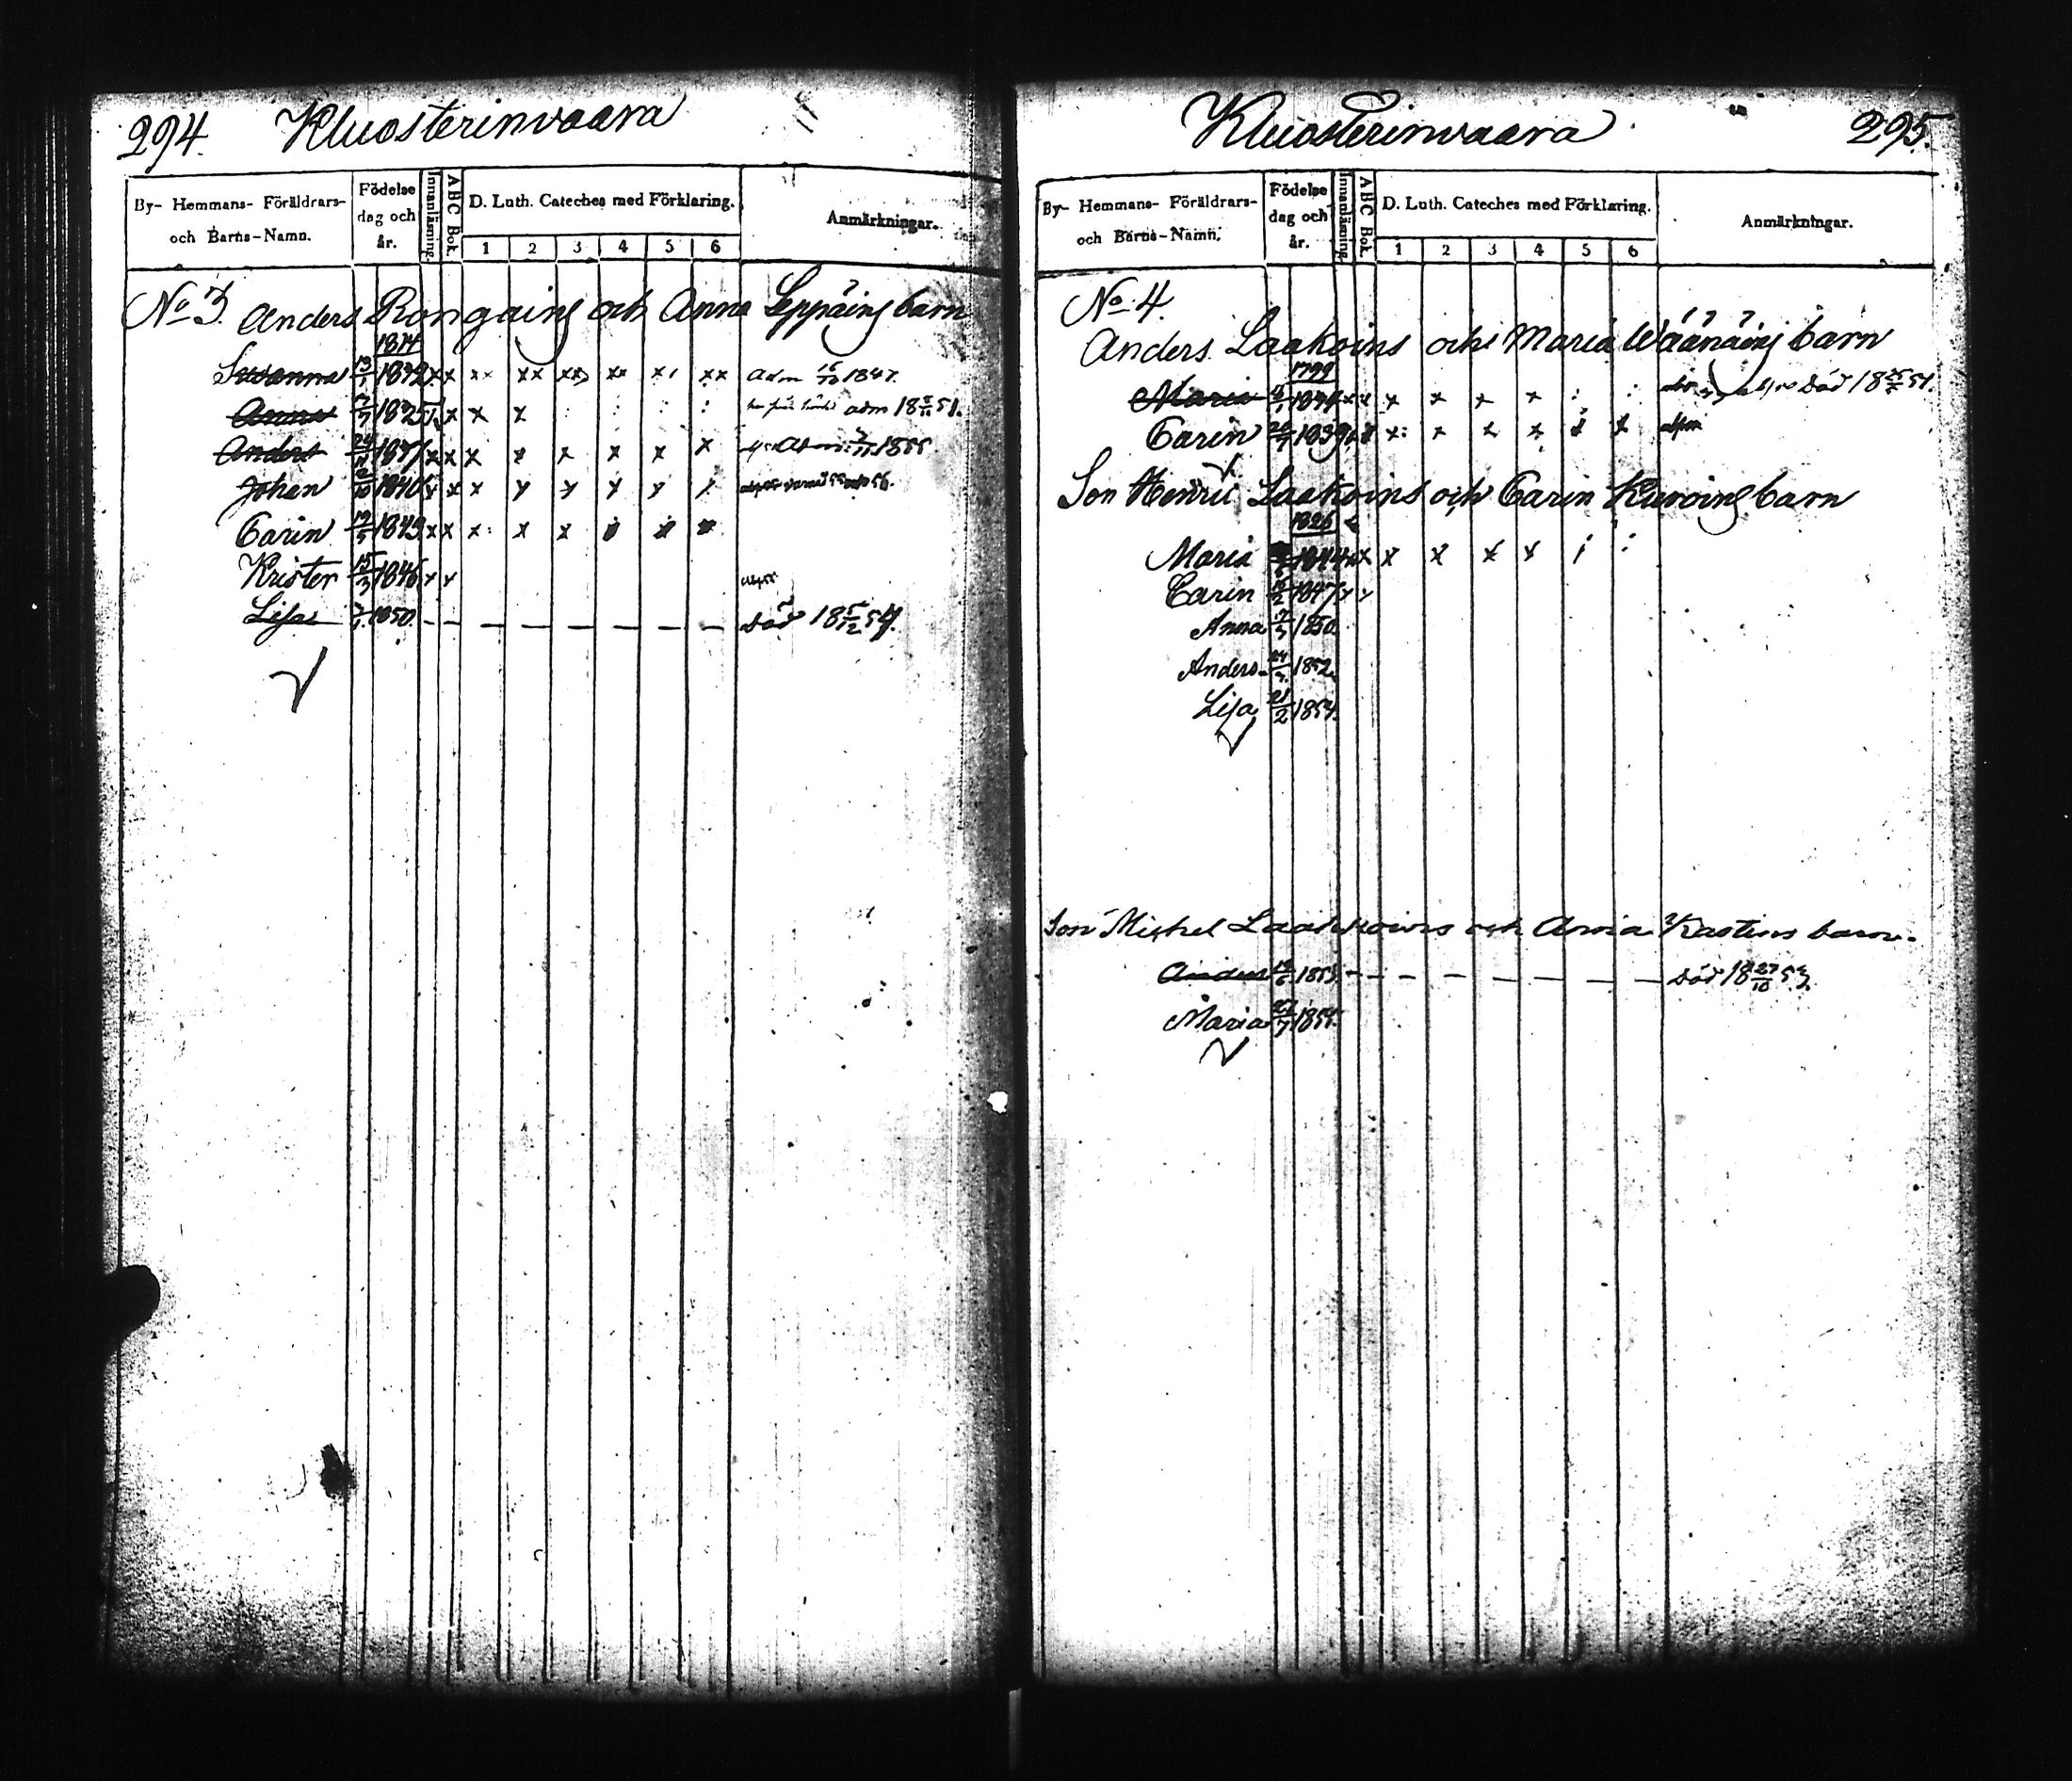 294. Kluosterinvaara
By- Hemmans- Föräldrars- och Barns-Namn.
Födelse dag och år.
Innanläsning.
A B C Bok.
D. Luth. Cateches med Förklaring.
1 2 3 4 5 6
Anmärkningar.
No 3. Anders Rongains och Anna Leppäins barn
1814
Susanna 13/1 1832 x x xx xx xx xx x xx adm 1847.
Anna 1825 x x x adm 18 51.
Anders x x x x x x x x 1855
Johan 1840 x x x x x x x
Carin 19/5 1843 x x x x x
Krister 15/3 1846 x x
Lisa 1850. — — — — — — — Död 18 5/12 54.
Kluosterinvaara 295.
By- Hemmans- Föräldrars- och Barns-Namn.
Födelse dag och år.
Innanläsning.
A B C Bok.
D. Luth. Cateches med Förklaring.
1 2 3 4 5 6
Anmärkningar.
No. 4.
Anders Laakoins och Maria Wäänäins barn
1799
Maria x x x x x x Död 18 54.
Carin 1839 x x x x x x
Son Henric Laakoins och Carin barn
1826
Maria 1844 x x x x x x
Carin 1847 x x
Anna 1850.
Anders 1852.
Lisa 21/2 1854.
Son Michel Laakkoins och Anna Kastins barn.
Anders 1853 — — — — — — — Död 18 27/10 53.
Maria 27/7 1855.